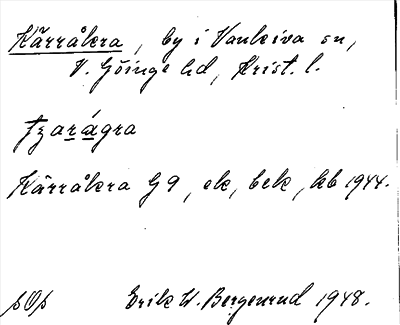 Kärråkra, by i Vankiva sn,
V. Göinge hd, Krist. l.
Kärråkra G 9, ek, bek, kb 1944.
pOp Erik W. Bergenrud 1948.